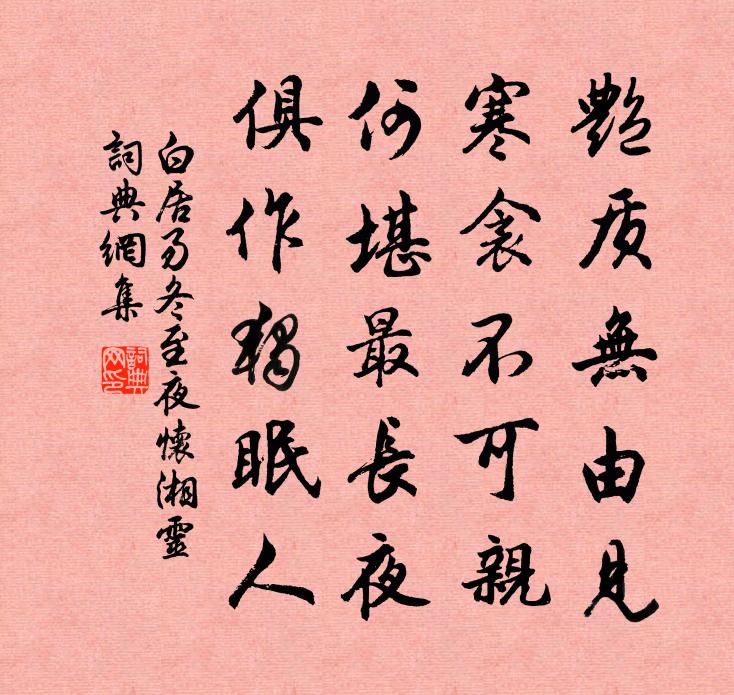 艷质無由見
寒衾不可親
何堪最長夜
俱作獨眠人
白居易冬至夜懷湘靈
詞典網集
詞典
網印